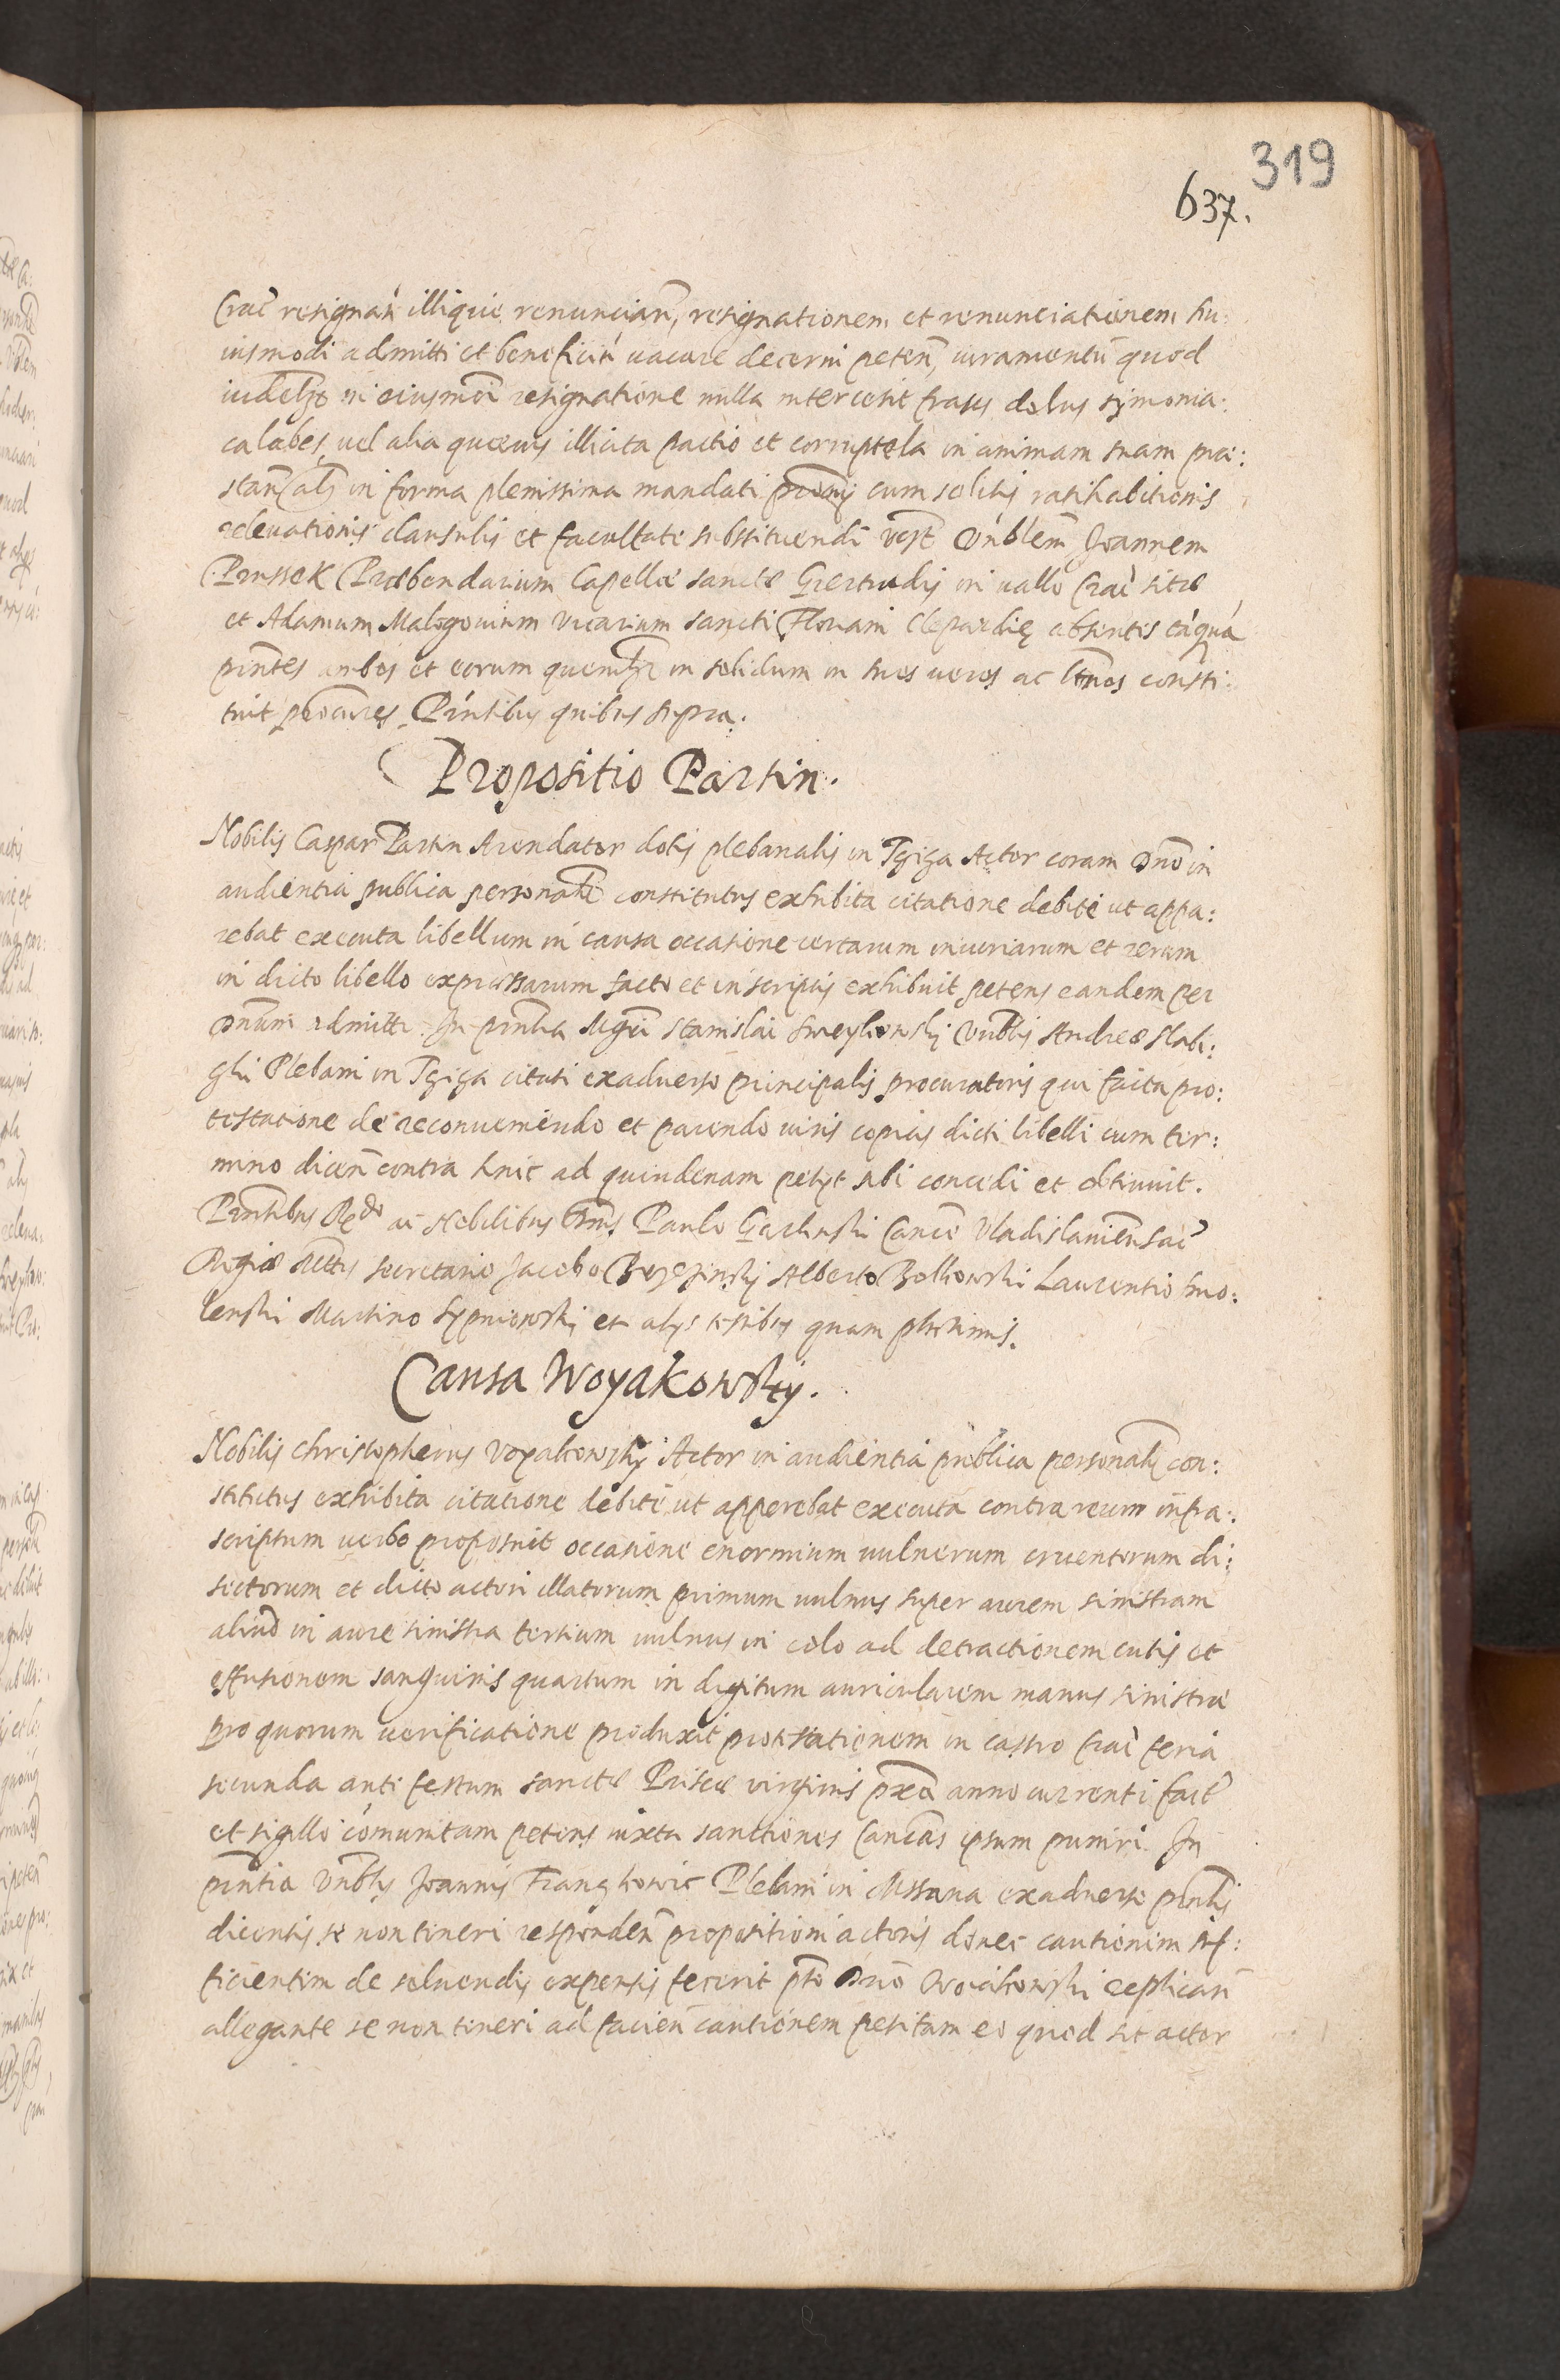 319
637.
Crac̃ resignañ illique renunciañ, resignationem et renunciationem hu:
iusmodi admitti et beneficiũ uacare decerni peteñ, iuramentũ quod
in eiusmõi resignatione nulla intercesit fraus dolus symonia:
ca labes, uel alia queuis illicita pactio et corruptela in animam suam prae:
stañ in forma plenissima mandati cum solitis ratihabitionis
releuationis clausulis et facultate substituendi Vñblem Joannem
Prussek Praebendarium Capellae sanctae Gertrudis in uallo Crac̃ sitae
et Adamum Malogouium Vicarium sancti Floriani Clepardię absentes tãquã
pñtes ambos et eorum quemlibet in solidum in suos ueros ac ltimos consti:
tuit procures. Pñtibus quibus supra.
Propositio Partin.
Nobilis Caspar Partin Arendator dotis plebanalis in Tziza Actor coram Dño in
audientia publica personalr constitutus exhibita citatione debite ut appa:
rebat executa libellum in causa occasione certarum iniuriarum et rerum
in dicto libello expressarum facto et in scriptis exhibuit petens eundem per
Dnum admitti. In pñtia Mgri Stanislai Vnblis Andreae Slabi:
ghi Plebani in Tziza citati ex aduerso principalis procuratoris qui facta pro:
testatione de reconueniendo et parendo iuris copias dicti libelli cum ter:
mino diceñ contra hinc ad quindenam petyt sibi concedi et obtinuit.
Pñtibus Rdo ac Nobilibus Dñis Paulo Garlinski Canco Vladislauieñ Sac̃
Regiae Mttis secretario Jacobo Brzezinsky Alberto Bolkowski Laurentio Smo:
lenski Martino Sypniowsky et alys testibus quam plurimis.
Causa Woyakowsky.
Nobilis Christopherus Voyakowsky Actor in audientia publica personalr con:
stitutus exhibita citatione debite ut apperebat executa contra reum infra:
scriptum uerbo proposuit occasione enormium uulnerum cruentorum di:
sectorum et dicto actori illatorum primum uulnus super aurem sinistram
aliud in aure sinistra tertium uulnus in colo ad detractionem cutis et
effusionem sanguinis quartum in digitum auricularem manus sinistrae
pro quorum uerificatione produxit protestationem in castro Crac̃ feria
secunda ante festum sanctae Priscae virginis pxa anno currenti fact̃
et sigillo comunitam petens iuxta sanctiones Cancas ipsum puniri. In
pñtia Vnblis Joannis Frangkowic Plebani in Mssana ex aduerso pñtis
dicentis se non teneri respondeñ propositioni actoris donec cautionem suf:
ficientem de soluendis expensis fecerit pto Dño Woiakowski replicañ
allegante se non teneri ad facieñ cautionem petitam eo quod sit actor